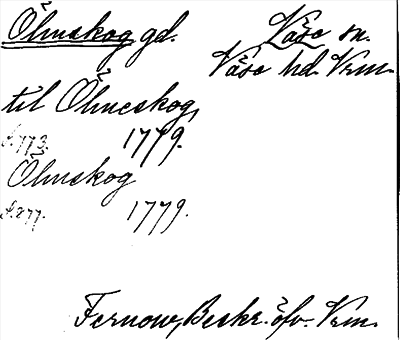 Ölmskog gd. Väse sn.
Väse hd. Vrm.
til Ölmeskog,
s. 773. 1779.
Ölmskog
s. 277. 1779.
Fernow, Beskr. öfv. Vrm.